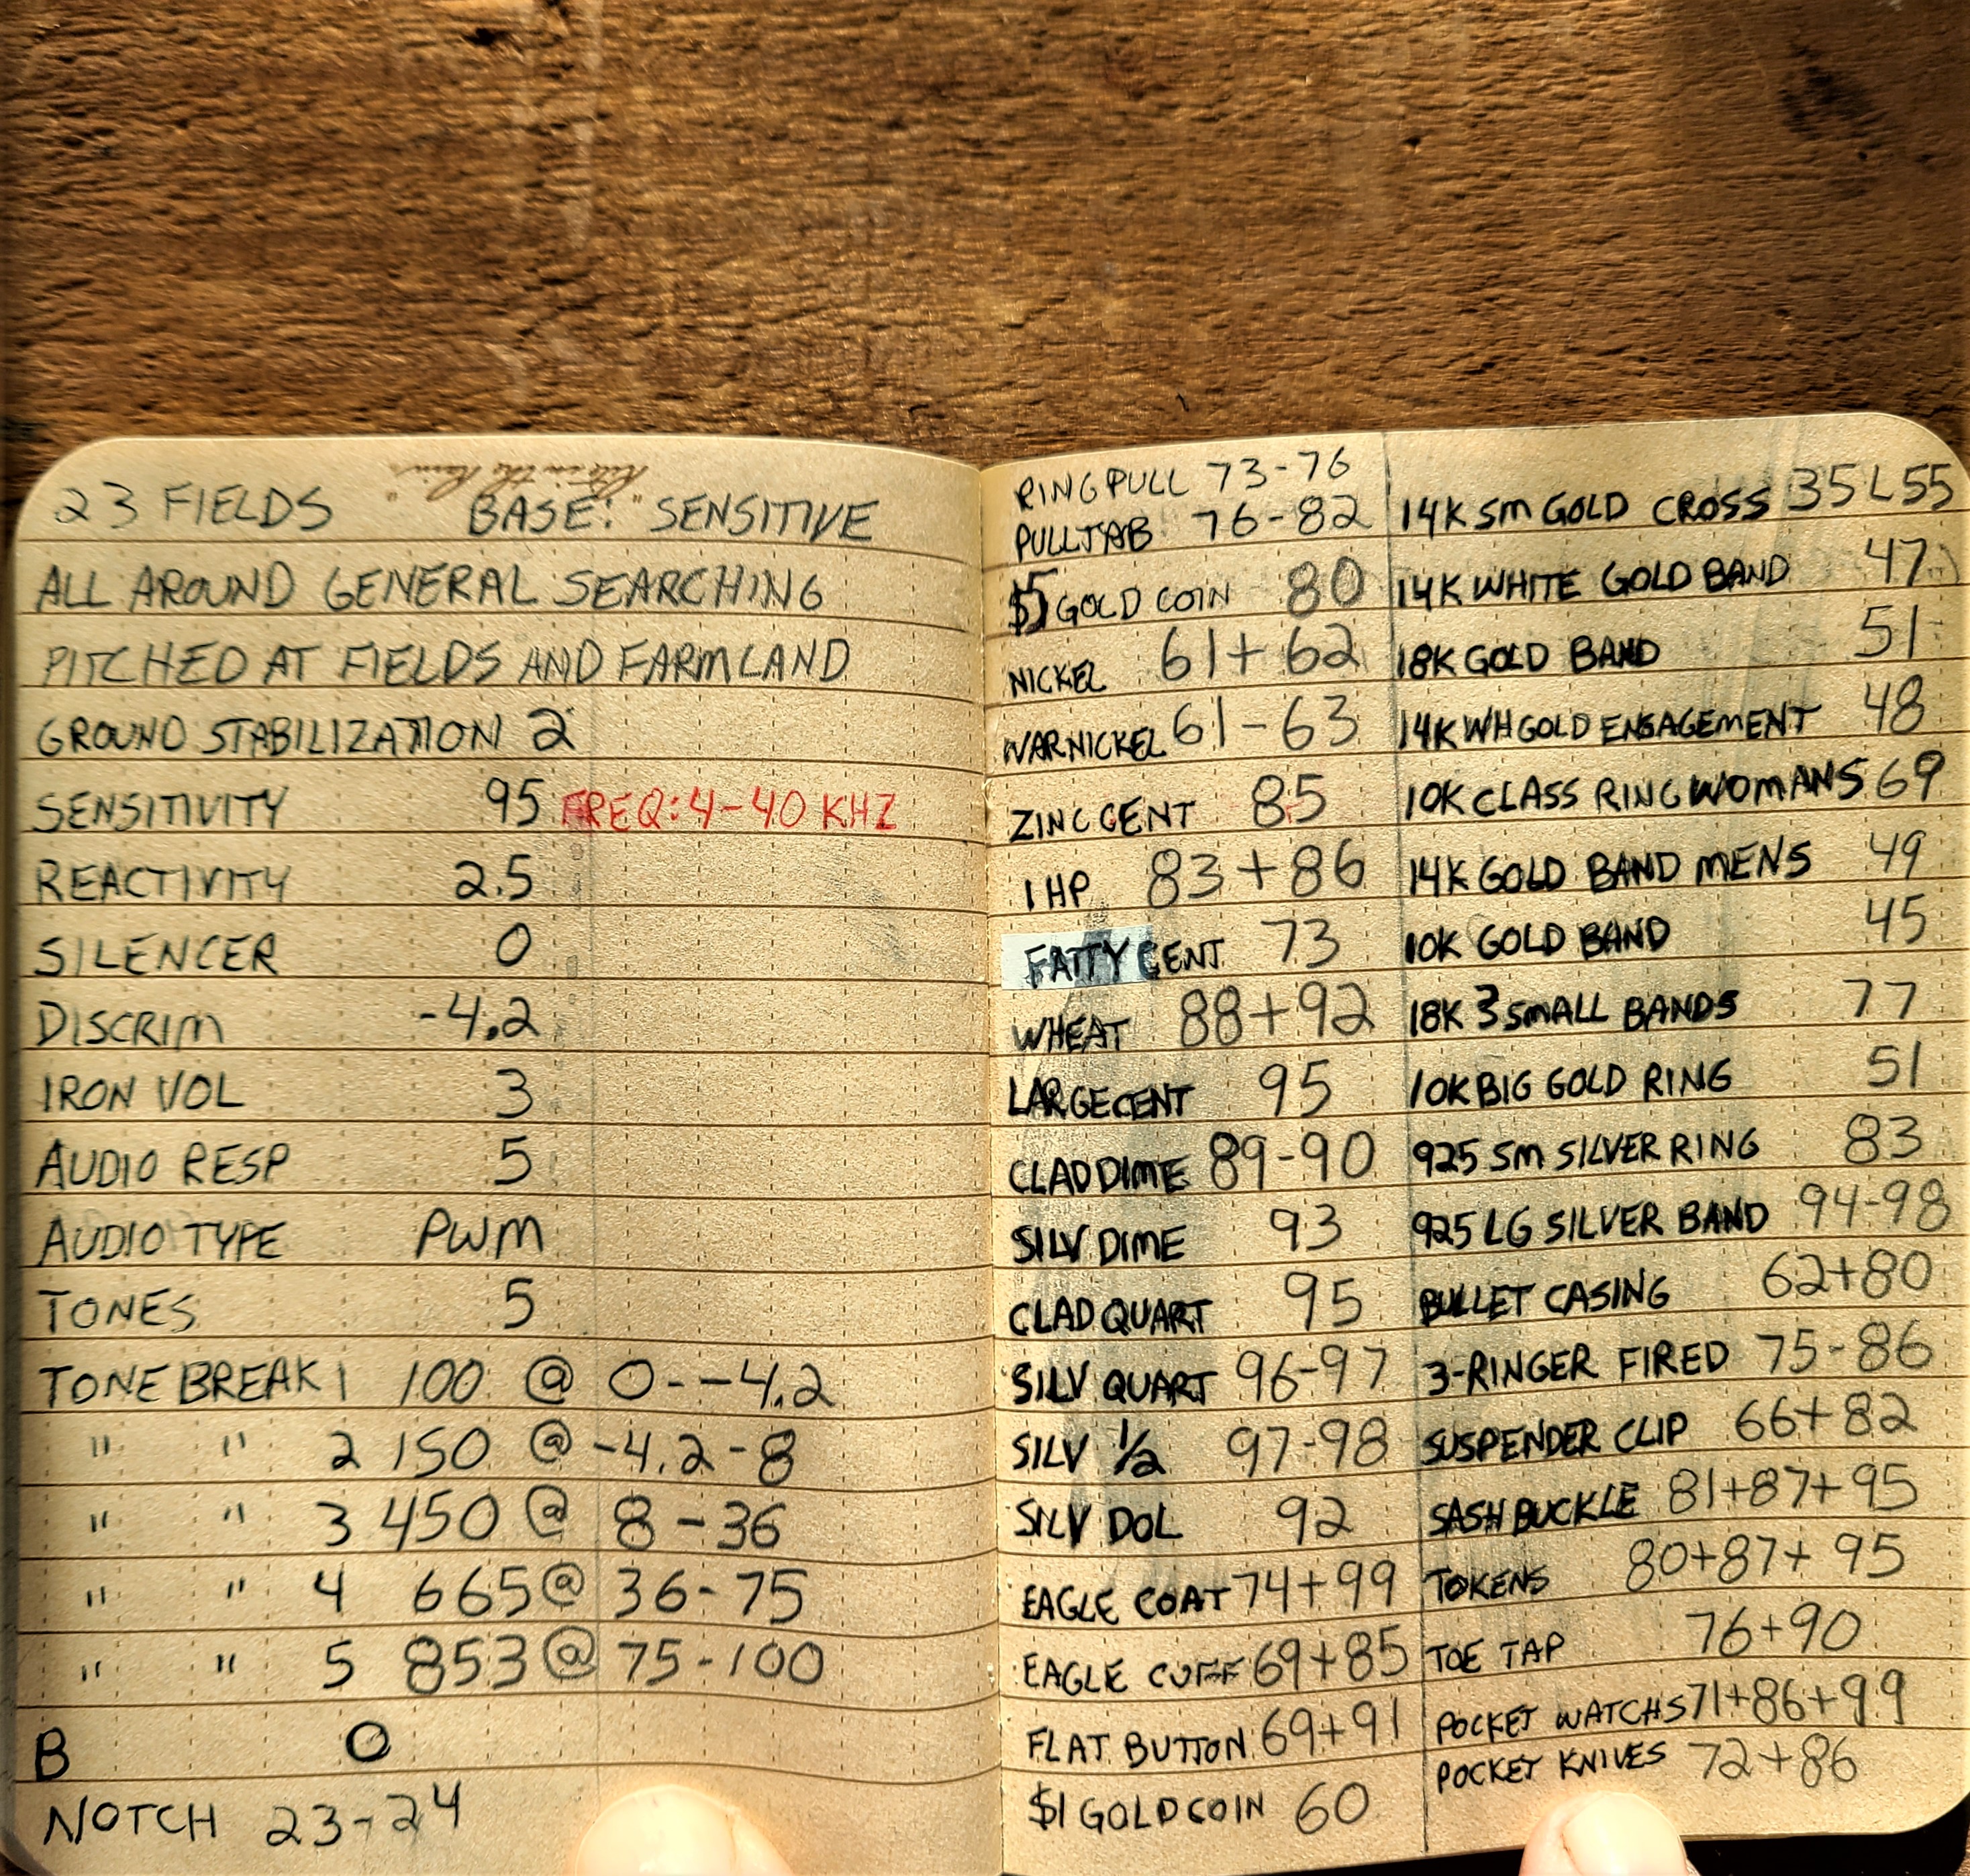 "Rite in the Rain"
23 FIELDS BASE: SENSITIVE
ALL AROUND GENERAL SEARCHING
PITCHED AT FIELDS AND FARMLAND
GROUND STABILIZATION 2
SENSITIVITY 95 FREQ: 4-40 KHZ
REACTIVITY 2.5
SILENCER 0
DISCRIM -4.2
IRON VOL 3
AUDIO RESP 5
AUDIO TYPE PWM
TONES 5
TONE BREAK 1 100 @ 0--4.2
" " 2 150 @ -4.2-8
" " 3 450 @ 8-36
" " 4 665 @ 36-75
" " 5 853 @ 75-100
B 0
NOTCH 23-24
RING PULL 73-76
PULLTAB 76-82
$5 GOLD COIN 80
NICKEL 61+62
WARNICKEL 61-63
ZINC CENT 85
IHP 83+86
FATTY CENT 73
WHEAT 88+92
LARGE CENT 95
CLAD DIME 89-90
SILV DIME 93
CLAD QUART 95
SILV QUART 96-97
SILV 1/2 97-98
SILV DOL 92
EAGLE COAT 74+99
EAGLE CUFF 69+85
FLAT BUTTON 69+91
$1 GOLD COIN 60
14K SM GOLD CROSS 35 L 55
14K WHITE GOLD BAND 47
18K GOLD BAND 51
14K WH GOLD ENGAGEMENT 48
10K CLASS RING WOMANS 69
14K GOLD BAND MENS 49
10K GOLD BAND 45
18K 3 SMALL BANDS 77
10K BIG GOLD RING 51
925 SM SILVER RING 83
925 LG SILVER BAND 94-98
BULLET CASING 62+80
3-RINGER FIRED 75-86
SUSPENDER CLIP 66+82
SASH BUCKLE 81+87+95
TOKENS 80+87+95
TOE TAP 76+90
POCKET WATCHS 71+86+99
POCKET KNIVES 72+86